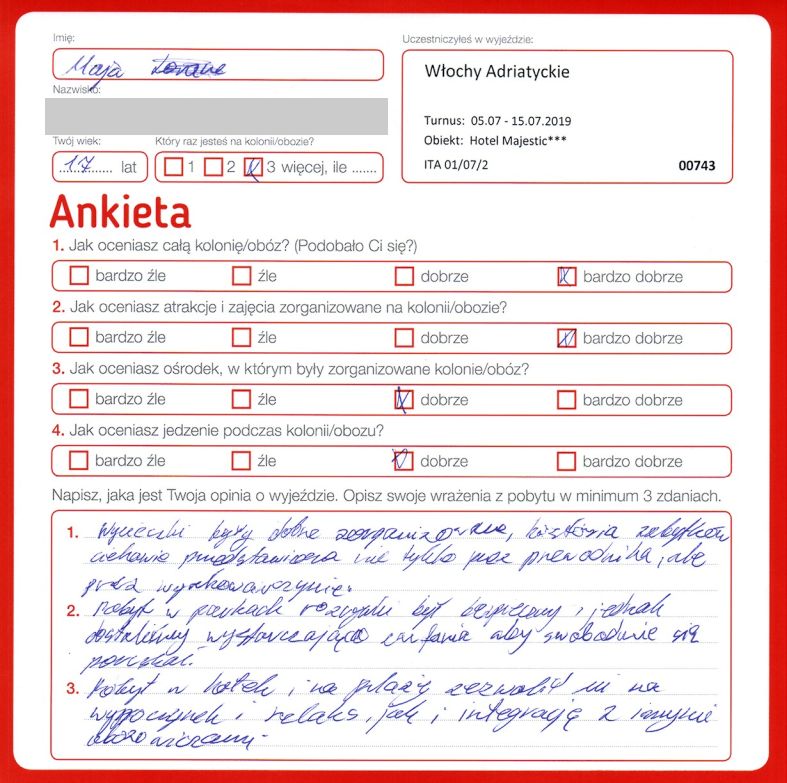 Imię:
Uczestniczyłeś w wyjeździe:
Maja
Nazwisko:
Włochy Adriatyckie
Turnus: 05.07 - 15.07.2019
Obiekt: Hotel Majestic***
ITA 01/07/2
00743
Twój wiek:
Który raz jesteś na kolonii/obozie?
17 lat
1 2 3 więcej, ile .......
Ankieta
1. Jak oceniasz całą kolonię/obóz? (Podobało Ci się?)
bardzo źle źle dobrze bardzo dobrze
2. Jak oceniasz atrakcje i zajęcia zorganizowane na kolonii/obozie?
bardzo źle źle dobrze bardzo dobrze
3. Jak oceniasz ośrodek, w którym były zorganizowane kolonie/obóz?
bardzo źle źle dobrze bardzo dobrze
4. Jak oceniasz jedzenie podczas kolonii/obozu?
bardzo źle źle dobrze bardzo dobrze
Napisz, jaka jest Twoja opinia o wyjeździe. Opisz swoje wrażenia z pobytu w minimum 3 zdaniach.
1. Wycieczki były dobrze zorganizowane, historia zabytków
ciekawie przedstawiona nie tylko przez przewodnika, ale
przez wychowawczynię.
2. Pobyt w parkach rozrywki był bezpieczny i jednak
dostaliśmy wystarczająco zaufania aby swobodnie się
poruszać.
3. Pobyt w hotelu i na plaży zezwolił mi na
wypoczynek i relaks, jak i integrację z innymi
obozowiczami.